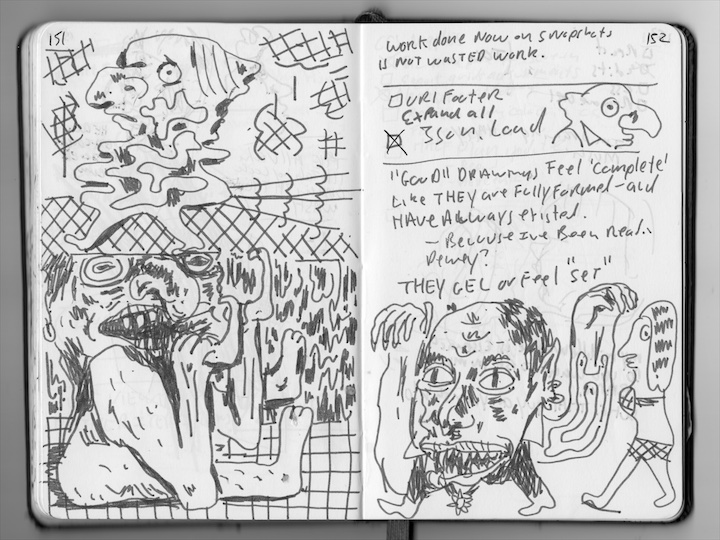 151
152
WORK DONE NOW ON SNAPSHOTS
IS NOT WASTED WORK.
URI Footer
EXPAND all
Json. Load
"GOOD" DRAWINGS Feel 'complete'
Like THEY are Fully Formed - and
HAVE Always existed.
- Because I've Been Read..
Dewey?
THEY GEL or Feel "set"